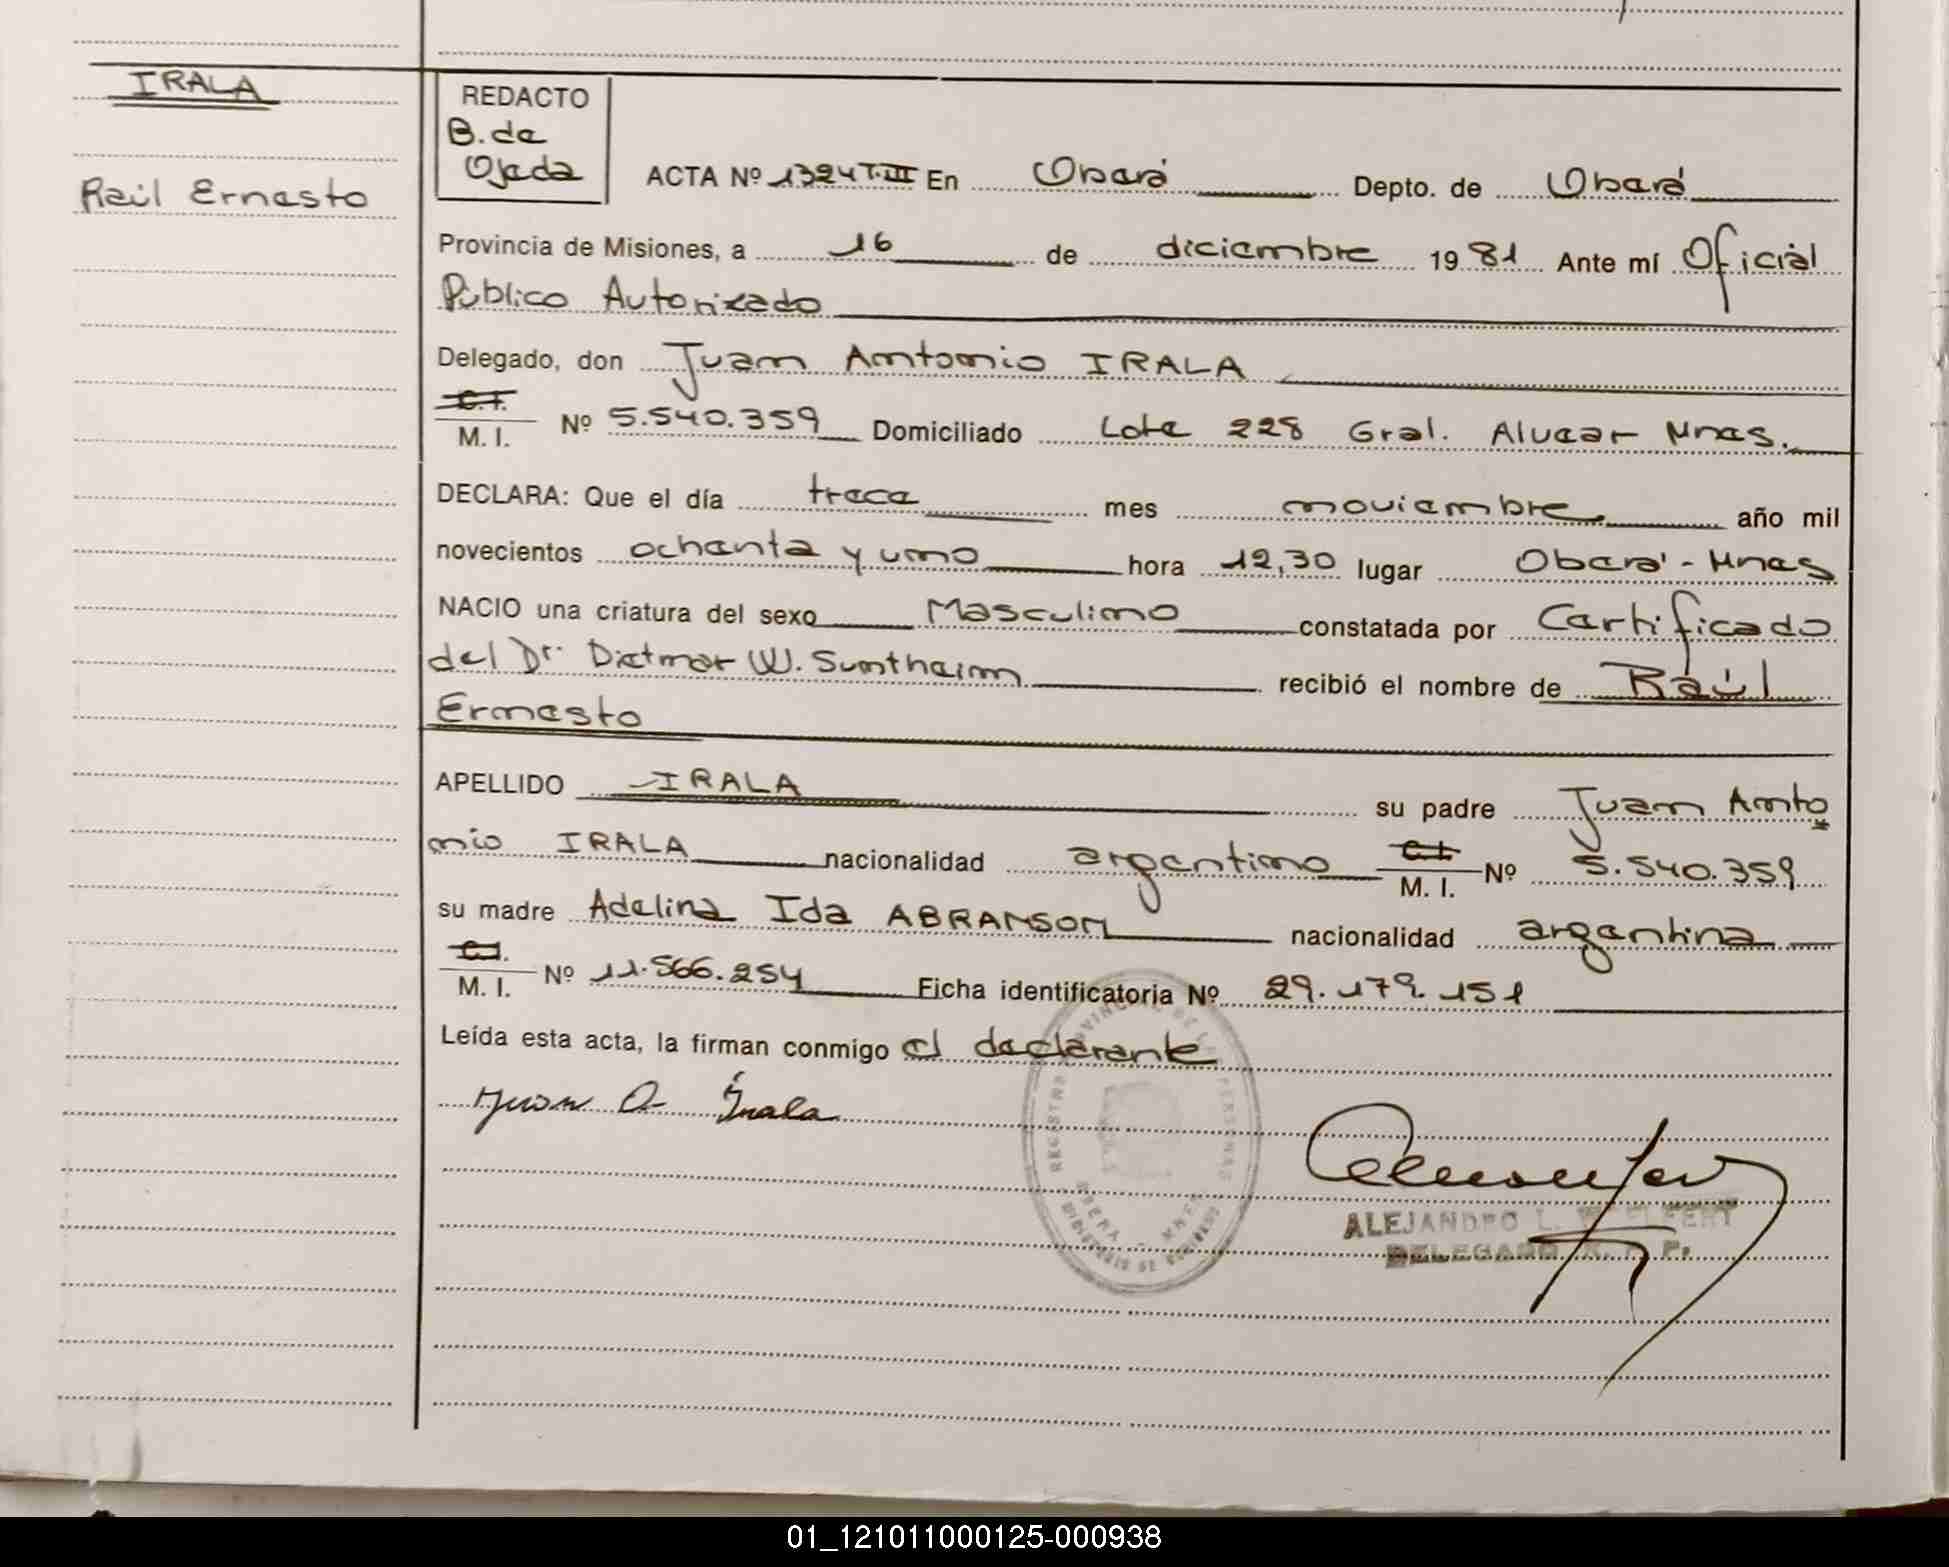 IRALA
Raúl Ernesto
REDACTO
B. de
Ojeda
ACTA Nº 1324 T.III En Oberá Depto. de Oberá
Provincia de Misiones, a 16 de diciembre 19 81 Ante mí Oficial
Público Autorizado
Delegado, don Juan Antonio IRALA
C.I.
M. I. Nº 5.540.359 Domiciliado Lote 228 Gral. Alvear Mnes.
DECLARA: Que el día trece mes noviembre año mil
novecientos ochenta y uno hora 12,30 lugar Oberá - Mnes
NACIO una criatura del sexo Masculino constatada por Certificado
del Dr. Dietmar W. Sontheim recibió el nombre de Raúl
Ernesto
APELLIDO IRALA su padre Juan Anto
nio IRALA nacionalidad argentino C.I. M. I. Nº 5.540.359
su madre Adelina Ida ABRAMSON nacionalidad argentina
C.I.
M. I. Nº 11.566.254 Ficha identificatoria Nº 29.179.151
Leída esta acta, la firman conmigo el declarante
Juan A Irala
REGISTRO PROVINCIAL DE LAS PERSONAS
OBERA - MNES
MINISTERIO DE GOBIERNO
ALEJANDRO L.
DELEGADO R. P. P.
01_121011000125-000938